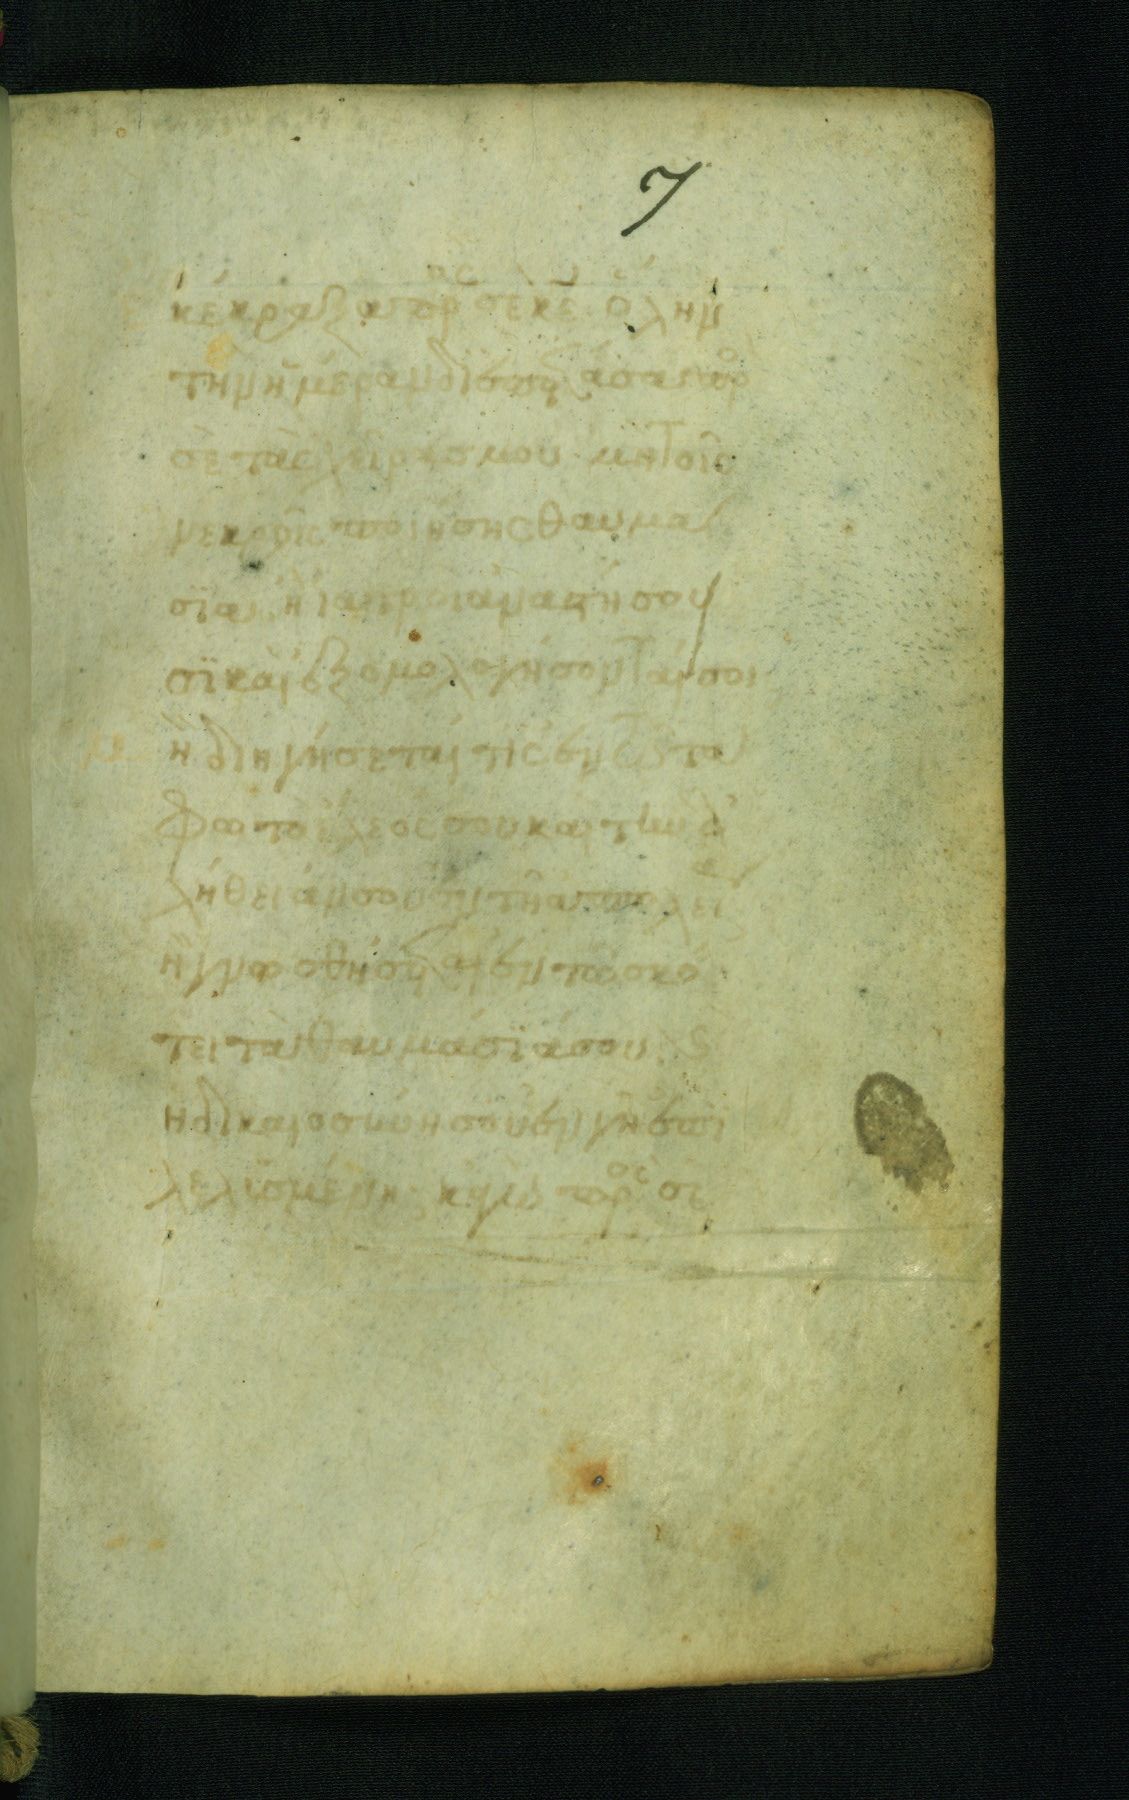 7
κέκραξα πρὸς σὲ κε ὅλην
τὴν ἡμέραν διεπέτασα πρ
σὲ τὰς χεῖρας μου μὴ τοῖς
νεκροῖς ποιήσης θαυμά
σϊα· ἢ ἰατροὶ ἀναστήσου
σϊ καὶ ἐξομολογήσονταί σοι
μὴ διηγήσεταί τις ἐν τῶ τά
φω τὸ ἔλεός σου καὶ τὴν ἀ
λήθειάν σου ἐν τῆ ἀπωλεί
μὴ γνωσθήσεται ἐν τῶ σκό
τει τὰ θαυμάσϊά σου κ
ἡ δικαιοσύνη σου ἐν γῆ ἐπι
λελισμένη· κἀγὼ πρὸς σὲ